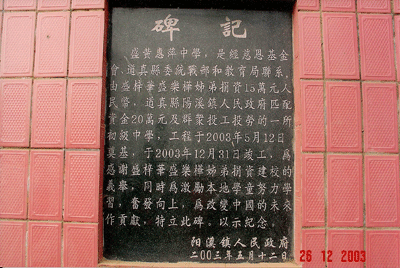 碑記
盛黄惠萍中學，是經慈恩基金
會、道真縣委統戰部和教育局聯系，
由盛梓華盛樂樺姊弟捐資15萬元人
民幣，道真縣陽溪鎮人民政府匹配
資金20萬元及群衆投工投勞的一所
初級中學，工程于2003年5月12日
奠基，于2003年12月31日竣工，爲
感謝盛梓華盛樂樺姊弟捐資建校的
義舉，同時爲激勵本地學童努力學
習，奮發向上，爲改變中國的未來
作貢獻，特立此碑，以示紀念。
陽溪鎮人民政府
二00三年五月十二日
26 12 2003